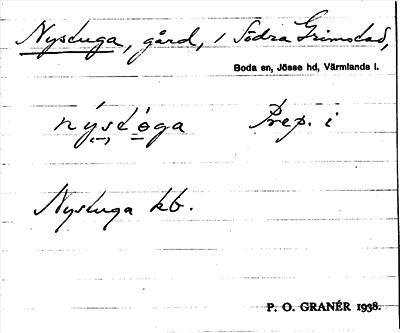 Nystuga, gård, i Södra Grimstad,
Boda sn, Jösse hd, Värmlands l.
nýstòga Prep. i
Nystuga kb.
P. O. GRANÉR 1938.